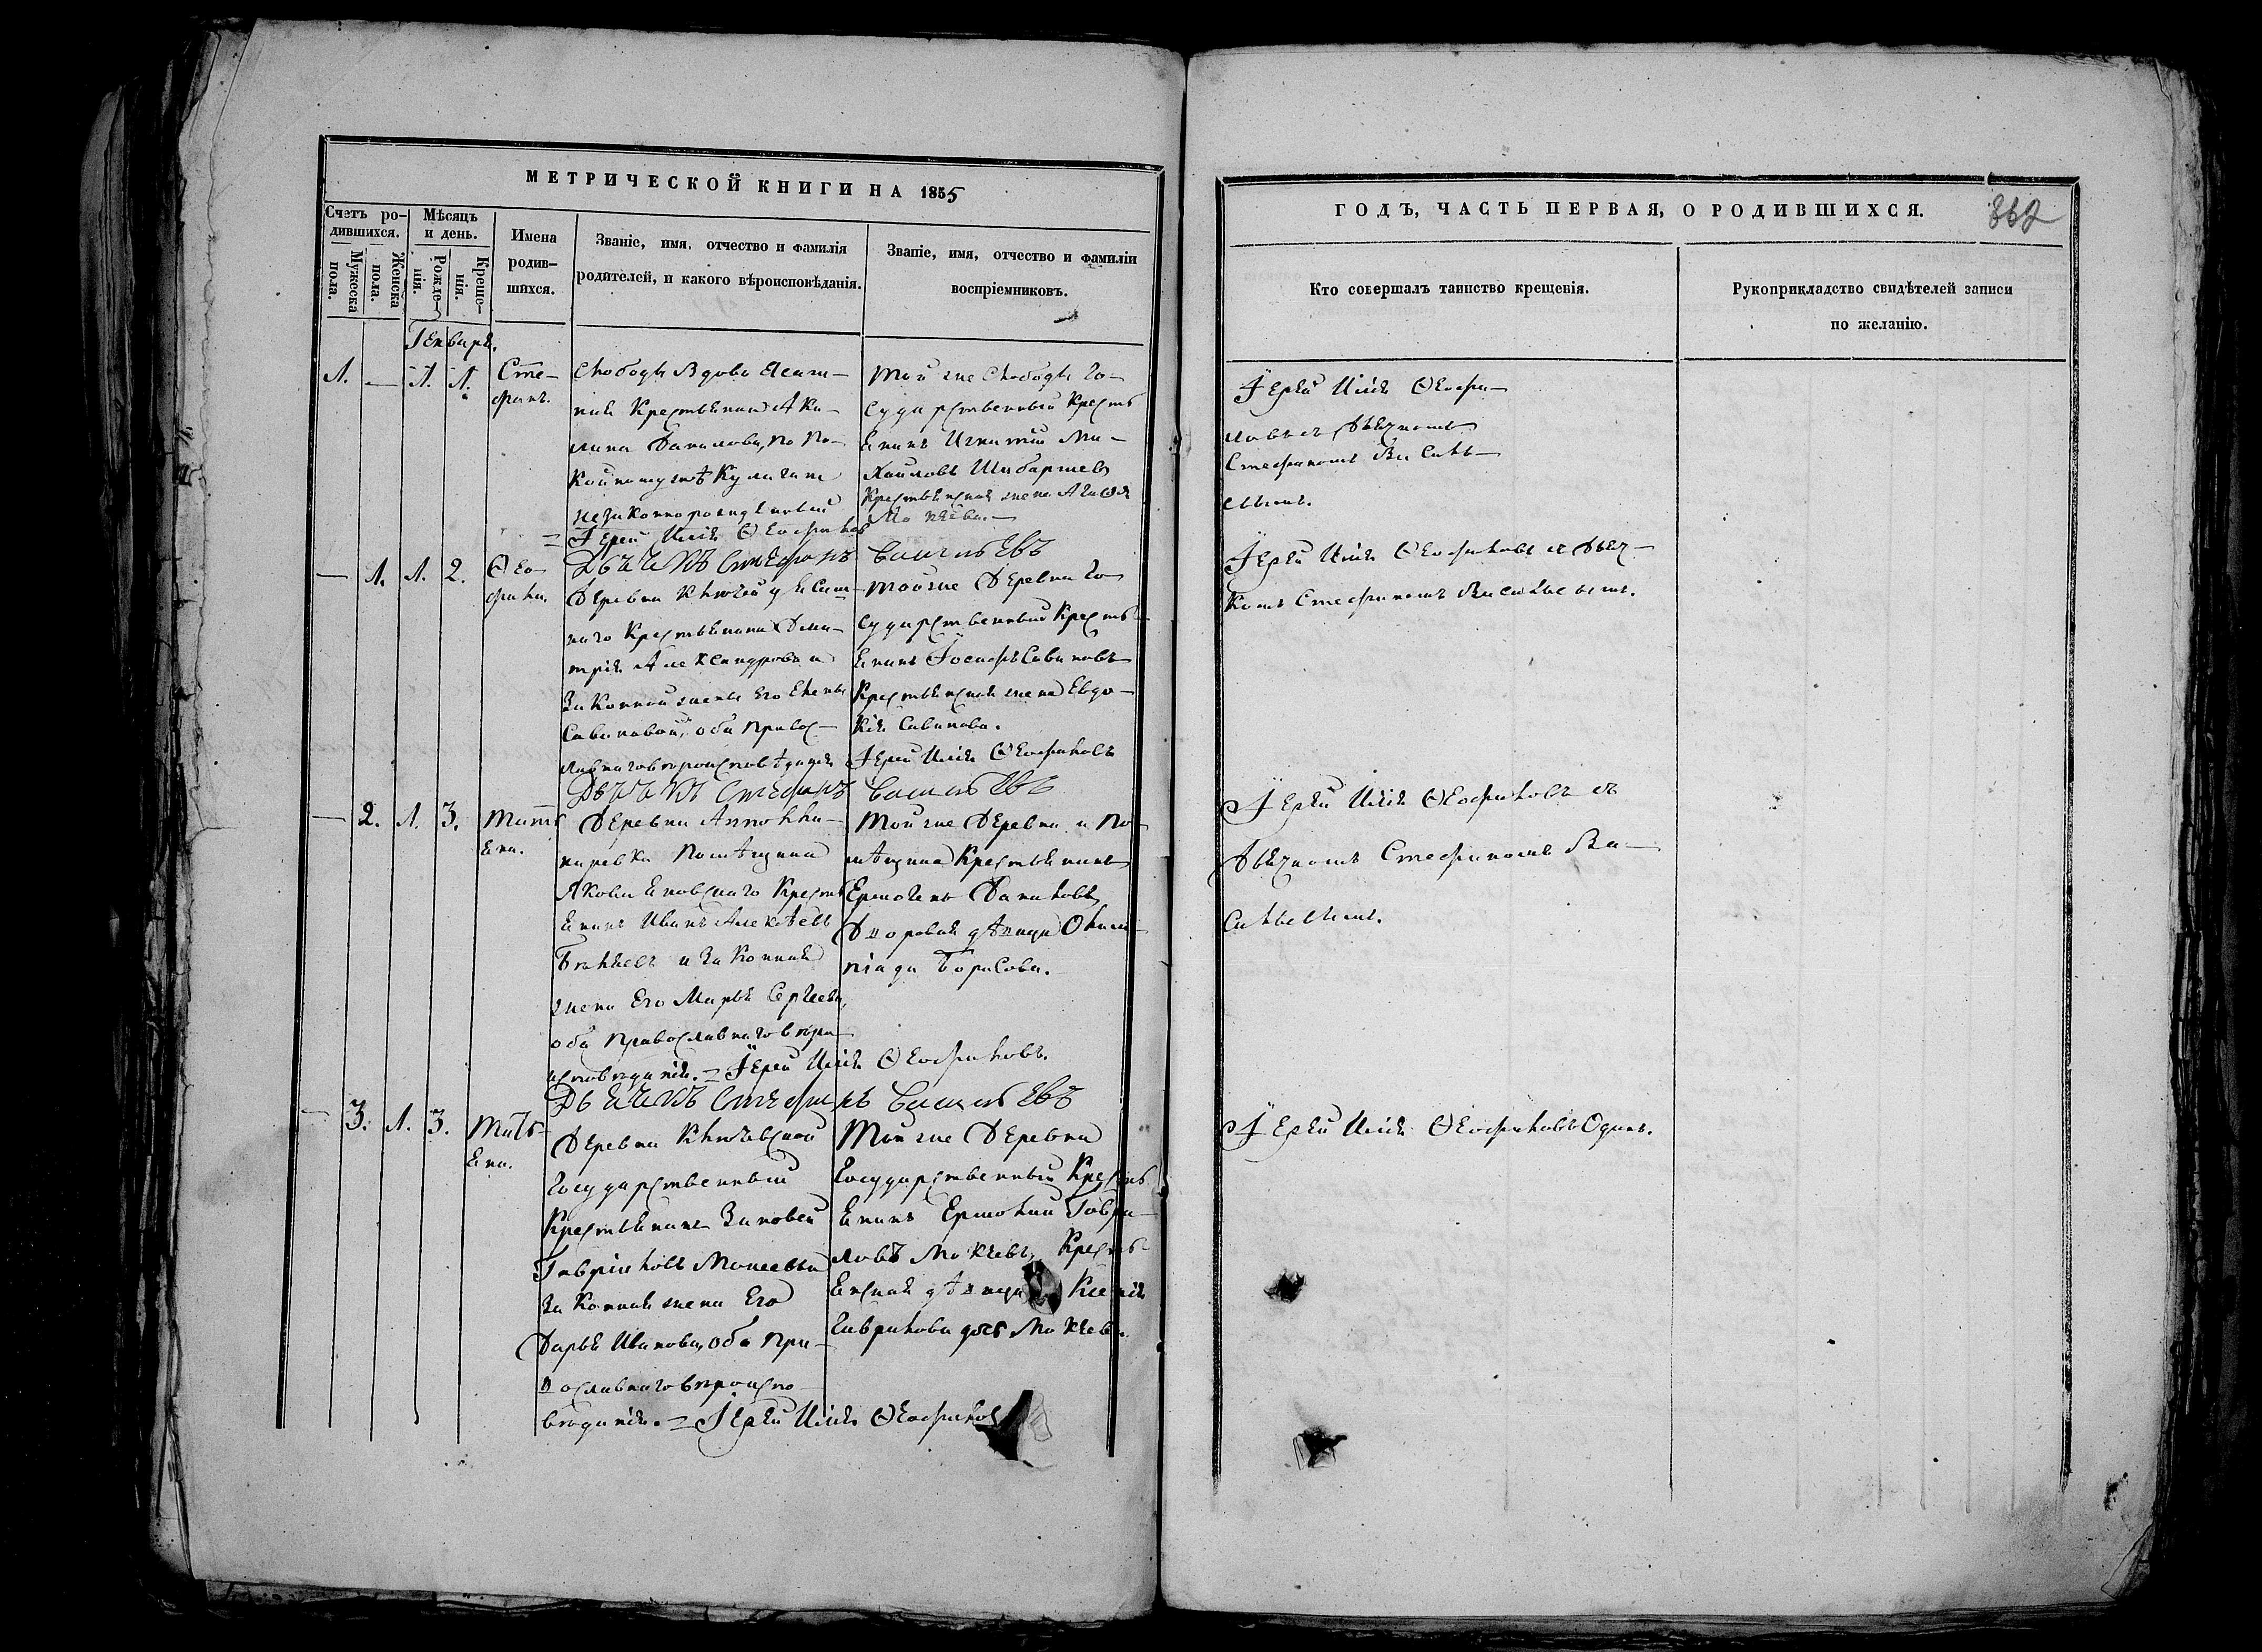 МЕТРИЧЕСКОЙ КНИГИ НА 1855
Счетъ ро-
дившихся.
Мужеска
пола.
Женска
пола.
Мѣсяцъ
и день.
Рожде-
нія.
Креще-
нія.
Имена
родив-
шихся.
Званіе, имя, отчество и фамилія
родителей, и какого вѣроисповѣданія.
Званіе, имя, отчество и фамилія
воспріемниковъ.
Генваря.
1. — 1. 1.
Сте-
фанъ.
Слободы Вдова
Крестьянина Аки-
лина Данилова, по По-
незаконнорожденный
= Іерей Илія Ѳеофиловъ
Дьячикъ Стефанъ Васильевъ
Той же Слободы Го-
сударственный Кресть
янинъ Игнатій Ми-
хайловъ
Крестьянская жена Агафія
— 1. 1. 2.
Ѳео-
фила.
Деревни
наго Крестьянина Дми-
трія Александрова и
законной жены его Елены
Савиновой, оба Правос-
лавнаго вѣроисповѣданія
Дьячикъ Стефанъ Васильевъ
Той же Деревни Го-
сударственный Кресть-
янинъ Іосифъ Савиновъ
Крестьянская жена Евдо-
кія Савинова.
Іерей Илія Ѳеофиловъ
— 2. 1. 3.
Татъ
яна.
Деревни Аполлина-
ревки Помѣщика
Яковлевскаго Кресть
янинъ Иванъ Алексѣевъ
и законная
жена Его Марья Сергеева,
оба Православнаго вѣро-
исповѣданія. = Іерей Илія Ѳеофиловъ.
Дьячикъ Стефанъ Васильевъ
Той же Деревни и По-
мѣщика Крестьянинъ
Ермогенъ Даниловъ
Дворовая дѣвица Олим-
піада Борисова.
— 3. 1. 3.
Тать-
яна.
Деревни Ключевской
Государственный
Крестьянинъ Зиновей
Гавріиловъ
законная жена Его
Дарья Иванова, оба Пра-
вославнаго вѣроиспо-
вѣданія. = Іерей Илія Ѳеофиловъ
Той же Деревни
Государственный Кресть
янинъ Ермолай Гаври-
ловъ Мокѣевъ, Кресть-
янская дѣвица Ксенія
Гаврилова дочь Мокѣева.
ГОДЪ, ЧАСТЬ ПЕРВАЯ, О РОДИВШИХСЯ.
Кто совершалъ таинство крещенія.
Рукоприкладство свидѣтелей записи
по желанію.
Іерей Илія Ѳеофи-
ловъ съ Дьячкомъ
Стефаномъ Василь-
евымъ.
Іерей Илія Ѳеофиловъ съ Дьяч-
комъ Стефаномъ Васильевымъ.
Іерей Илія Ѳеофиловъ съ
Дьячкомъ Стефаномъ Ва-
сильевымъ.
Іерей Илія Ѳеофиловъ Одинъ.